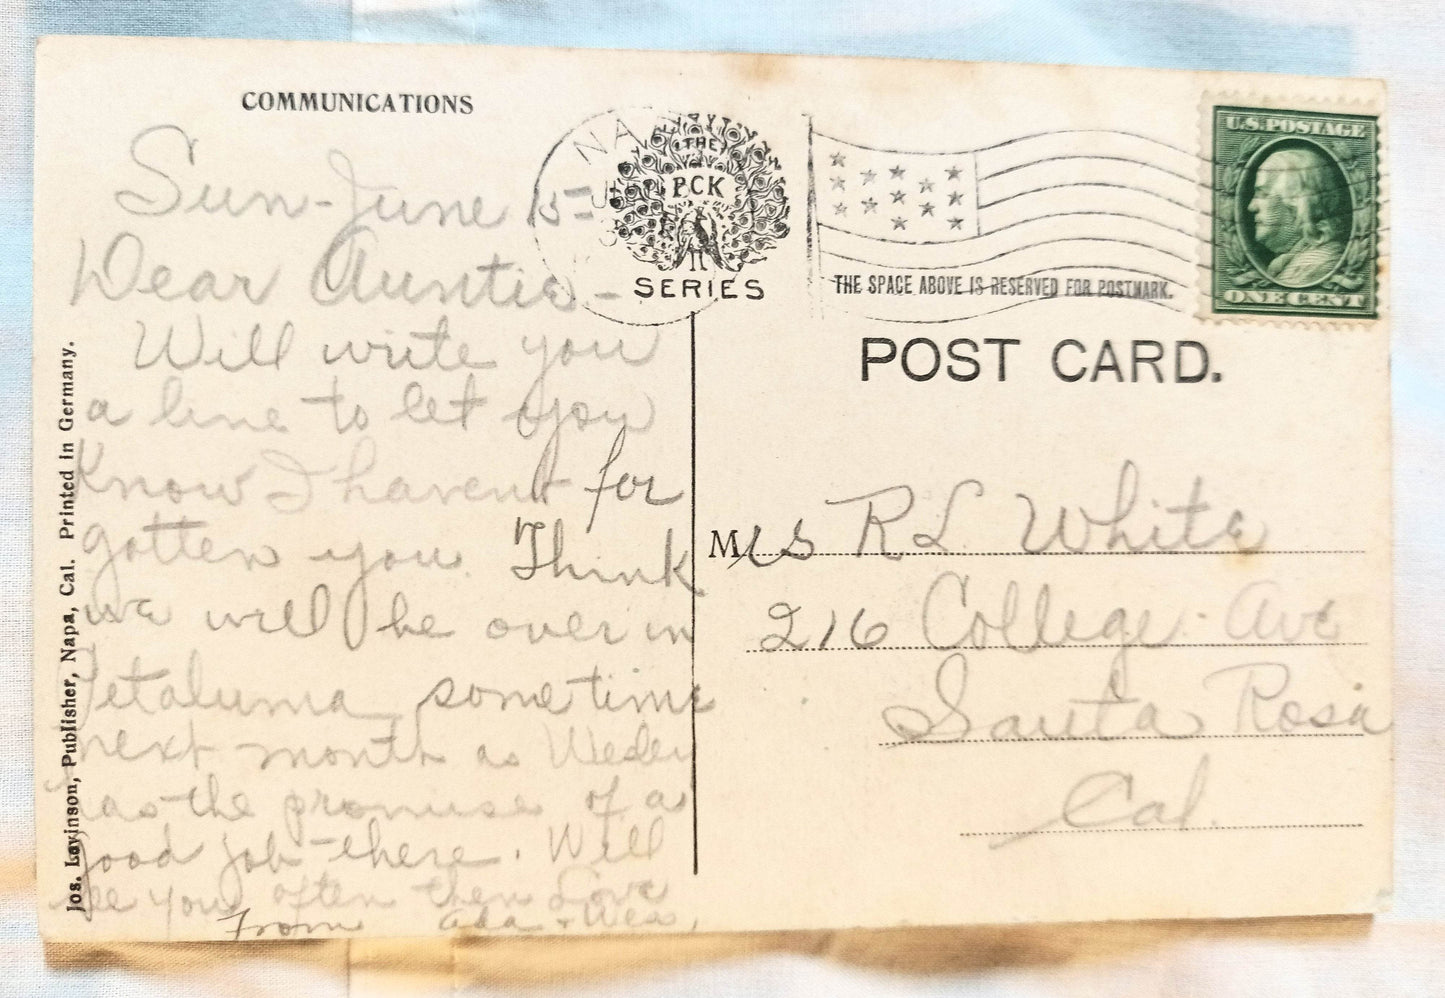 COMMUNICATIONS
Sun - June 15 -
Dear Auntie -
Will write you
a line to let you
Know I havent for
gotten you. Think
we will be over in
Petaluma, sometime
next month as
has the promise of a
good job there. Will
see you often then Love
From Ada +
Jos. Levinson, Publisher, Napa, Cal. Printed in Germany.
NA
THE
PCK
SERIES
THE SPACE ABOVE IS RESERVED FOR POSTMARK.
U.S. POSTAGE
ONE CENT
POST CARD.
Mrs R L White
216 College Ave
Santa Rosa
Cal.